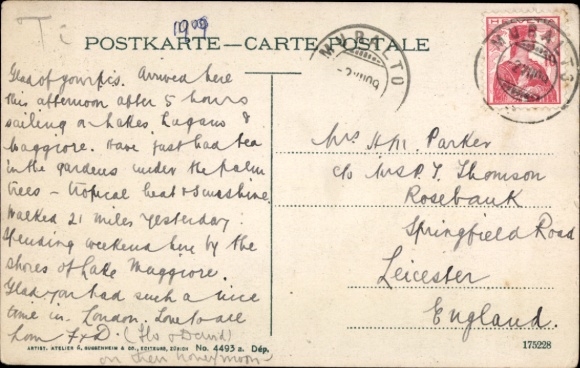 Ti
1909
POSTKARTE—CARTE POSTALE
MURALTO
HELVETIA
MURALTO
Glad of your pis. Arrived here
this afternoon after 5 hours
sailing on Lakes Lugano &
Maggiore. Have just had tea
in the gardens under the palm
trees – tropical heat & sunshine.
Walked 21 miles yesterday.
Spending weekend here by the
shores of Lake Maggiore.
Glad you had such a nice
time in London. Love to all
from F & D. (Flo & David)
on their honeymoon
Mrs H.M. Parker
c/o Mrs P.T. Thomson
Rosebank
Springfield Road
Leicester
England.
ARTIST. ATELIER H. GUGGENHEIM & CO., EDITEURS, ZÜRICH No. 4493 a. Dép.
175228